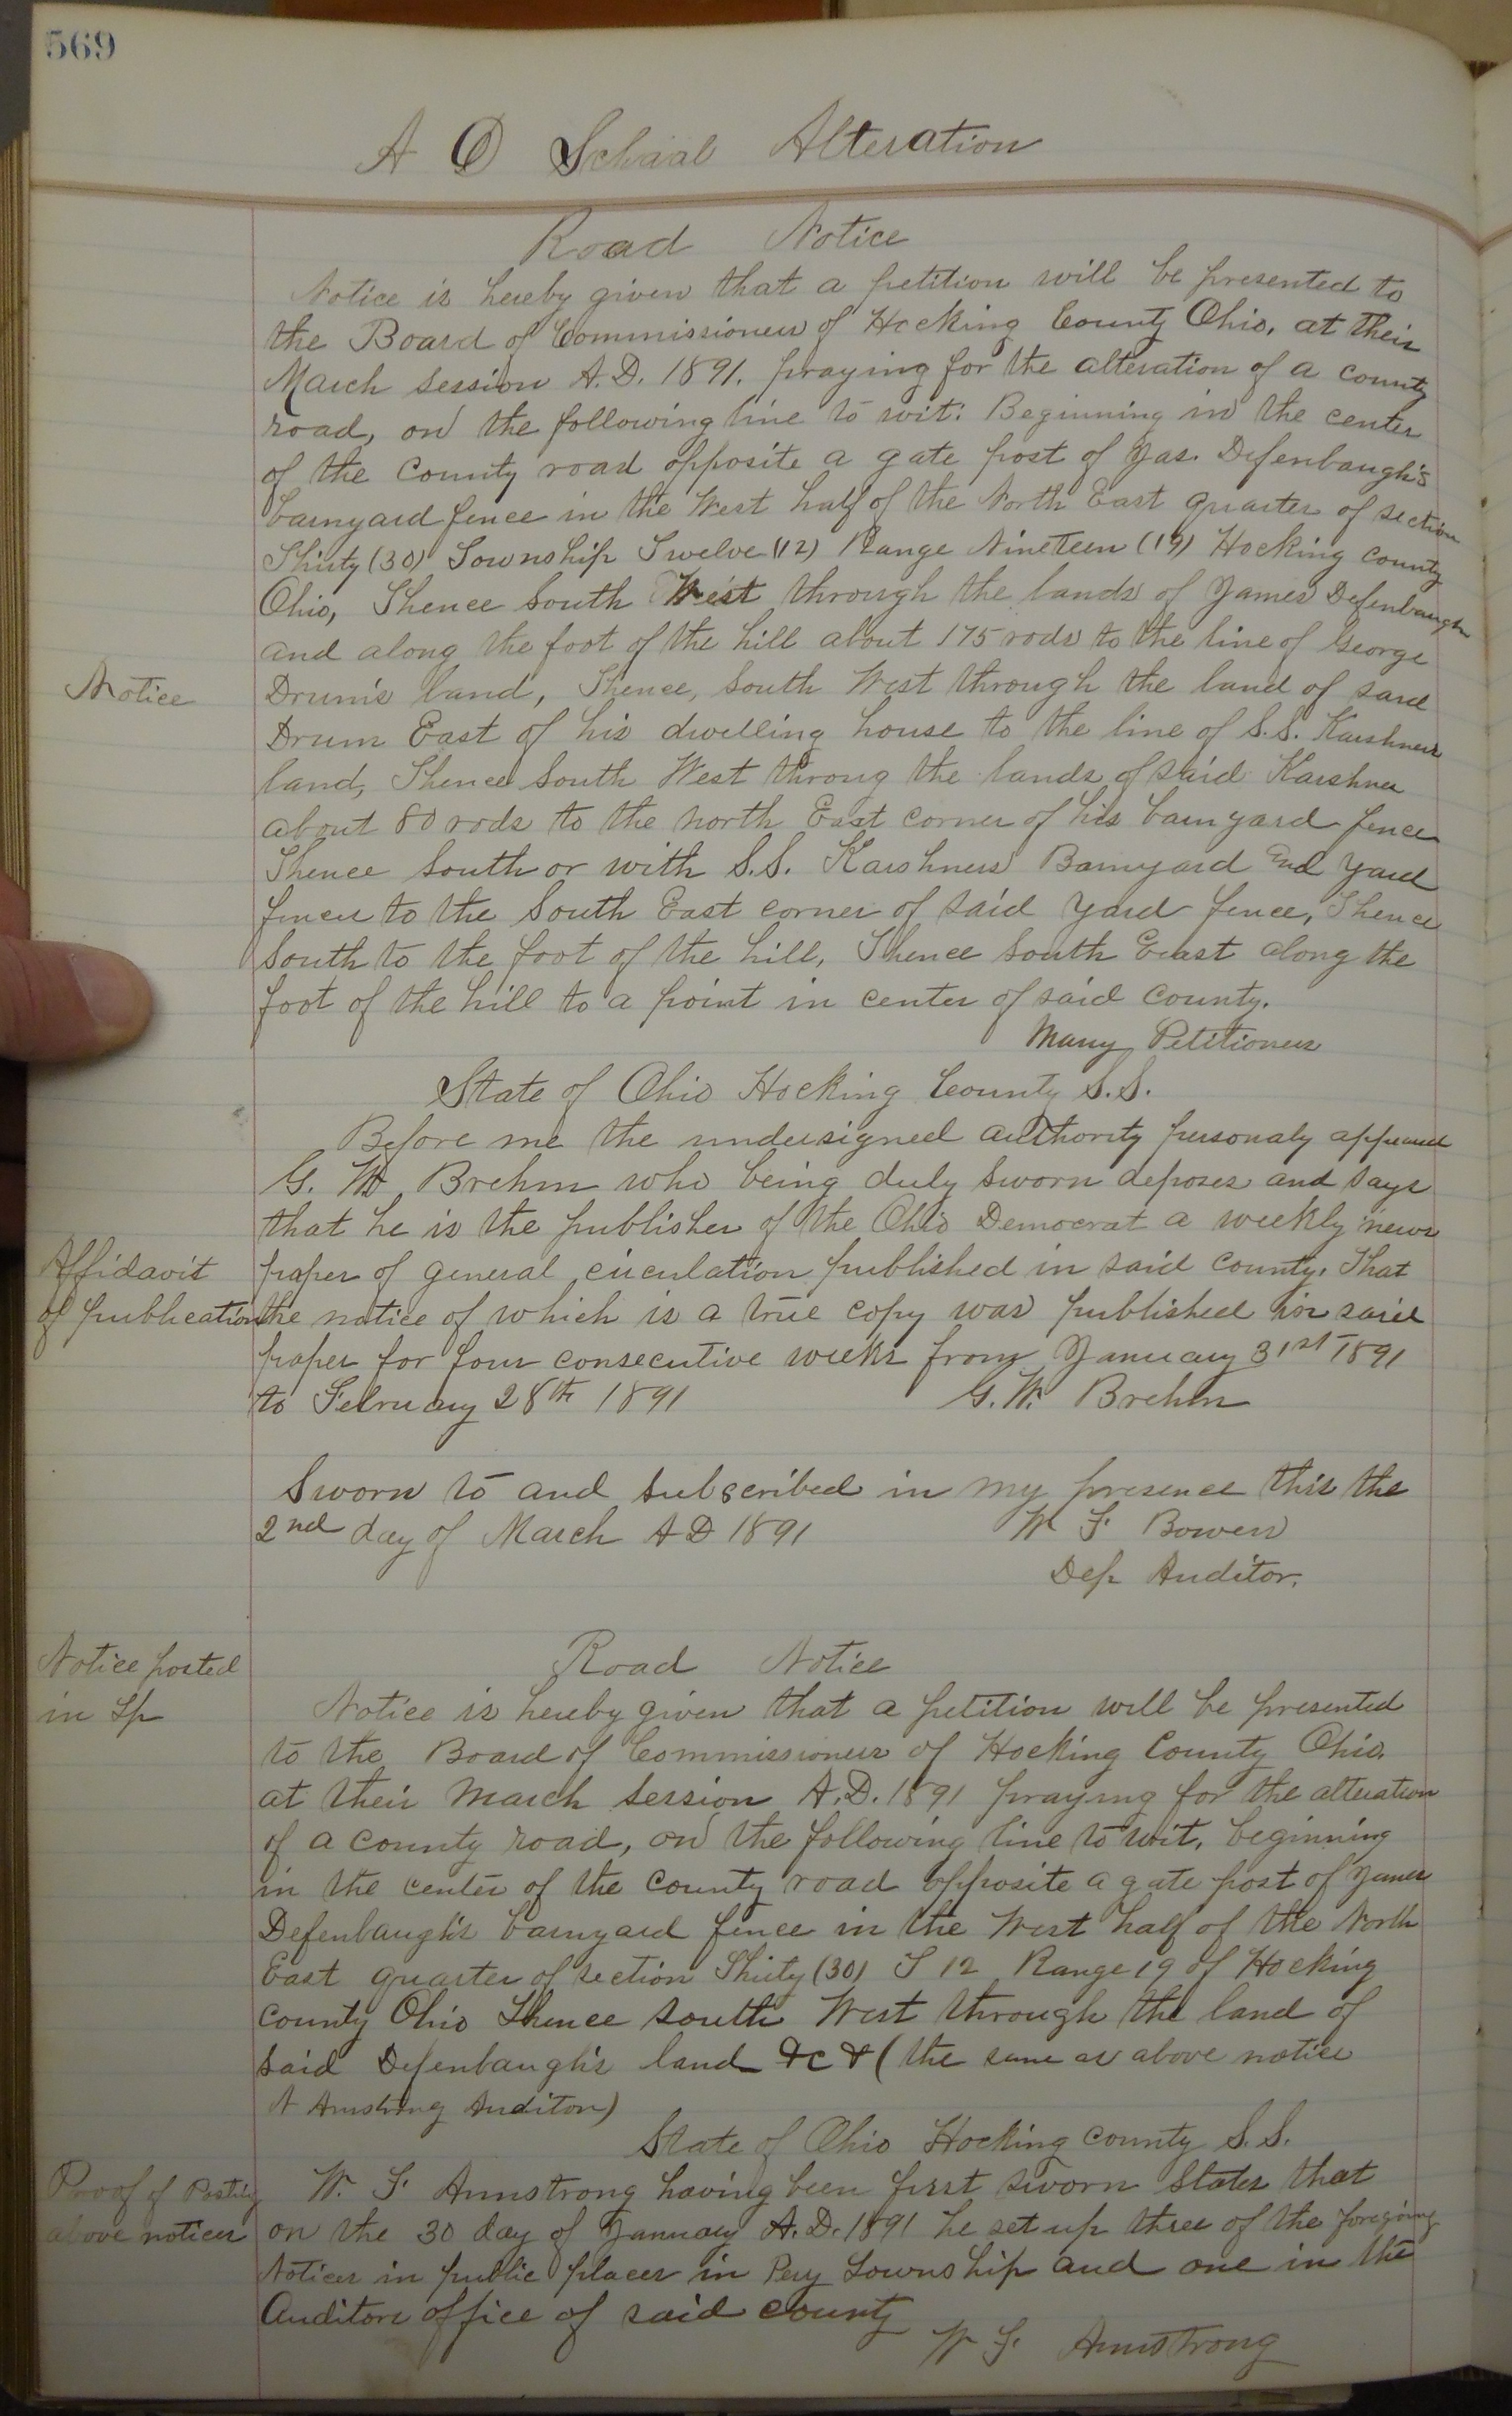 569
A D Schaal Alteration
Road Notice
Notice is hereby given that a petition will be presented to
the Board of Commissioners of Hocking County Ohio, at their
March session A.D. 1891. praying for the alteration of a county
road, on the following line to wit: Beginning in the center
of the County road opposite a gate post of Jas. Defenbaugh's
barnyard fence in the West half of the North East quarter of section
Thirty (30) Township Twelve (12) Range Nineteen (19) Hocking county
Ohio, Thence South West through the lands of James Defenbaugh
and along the foot of the hill about 175 rods to the line of George
Notice
Drum's land, Thence, South West through the land of said
Drum East of his dwelling house to the line of S.S. Karshners
land, Thence South West throug the lands of said Karshner
about 80 rods to the north East corner of his barnyard fence
Thence South or with S.S. Karshners Barnyard and yard
fences to the South East corner of said yard fence, Thence
South to the foot of the hill, Thence South East along the
foot of the hill to a point in center of said county.
Many Petitioners
State of Ohio Hocking County S.S.
Before me the undersigned authority personaly appeared
G. W. Brehm who being duly sworn deposes and says
that he is the publisher of the Ohio Democrat a weekly news
Affidavit
of publication
paper of general circulation published in said county. That
the notice of which is a true copy was published in said
paper for four consecutive weeks from January 31st 1891
to February 28th 1891 G. W. Brehm
Sworn to and subscribed in my presence this the
2nd day of March A D 1891 W F Bowen
Dep Auditor.
Notice posted
in Tp
Road Notice
Notice is hereby given that a petition will be presented
to the Board of Commissioners of Hocking County Ohio.
at their March session A.D. 1891 praying for the alteration
of a county road, on the following line to wit, beginning
in the center of the County road opposite a gate post of James
Defenbaugh's barnyard fence in the West half of the North
East quarter of section Thirty (30) T 12 Range 19 of Hocking
county Ohio Thence south West through the land of
said Defenbaugh's land &c & (the same as above notice
A Armstrong Auditor)
State of Ohio Hocking county S.S.
Proof of Posting
above notices
W. F. Armstrong having been first sworn states that
on the 30 day of January A.D. 1891 he set up three of the foregoing
Notices in public places in Pery Township and one in the
Auditors office of said county
W F. Armstrong